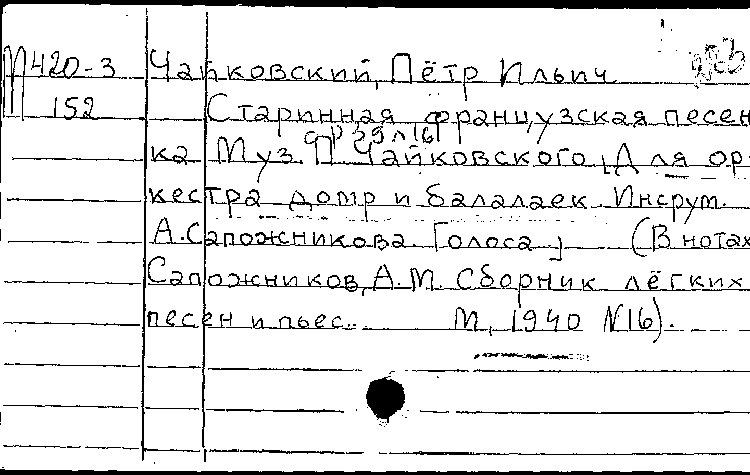 М420-3 Чайковский, Пётр Ильич
152 Старинная французская песен
ка Муз. П Чайковского, Для ор
кестра домр и балалаек Инсрут.
А. Сапожникова. Голоса] (В нотах
Сапожников, А.М. Сборник лёгких
песен и пьес.. М, 1940 N16).